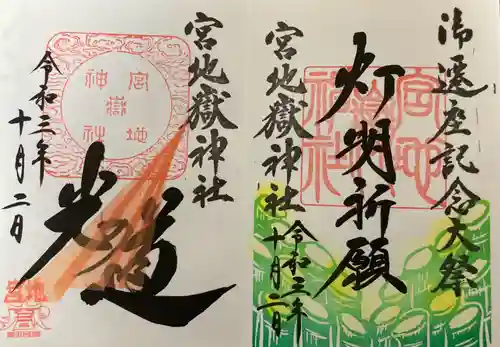 御遷座記念大祭
灯明祈願
宮地嶽神社
令和三年
十月二日
宮地嶽神社
宮地嶽神社
光の道
令和三年
十月二日
宮地嶽神社
宮地